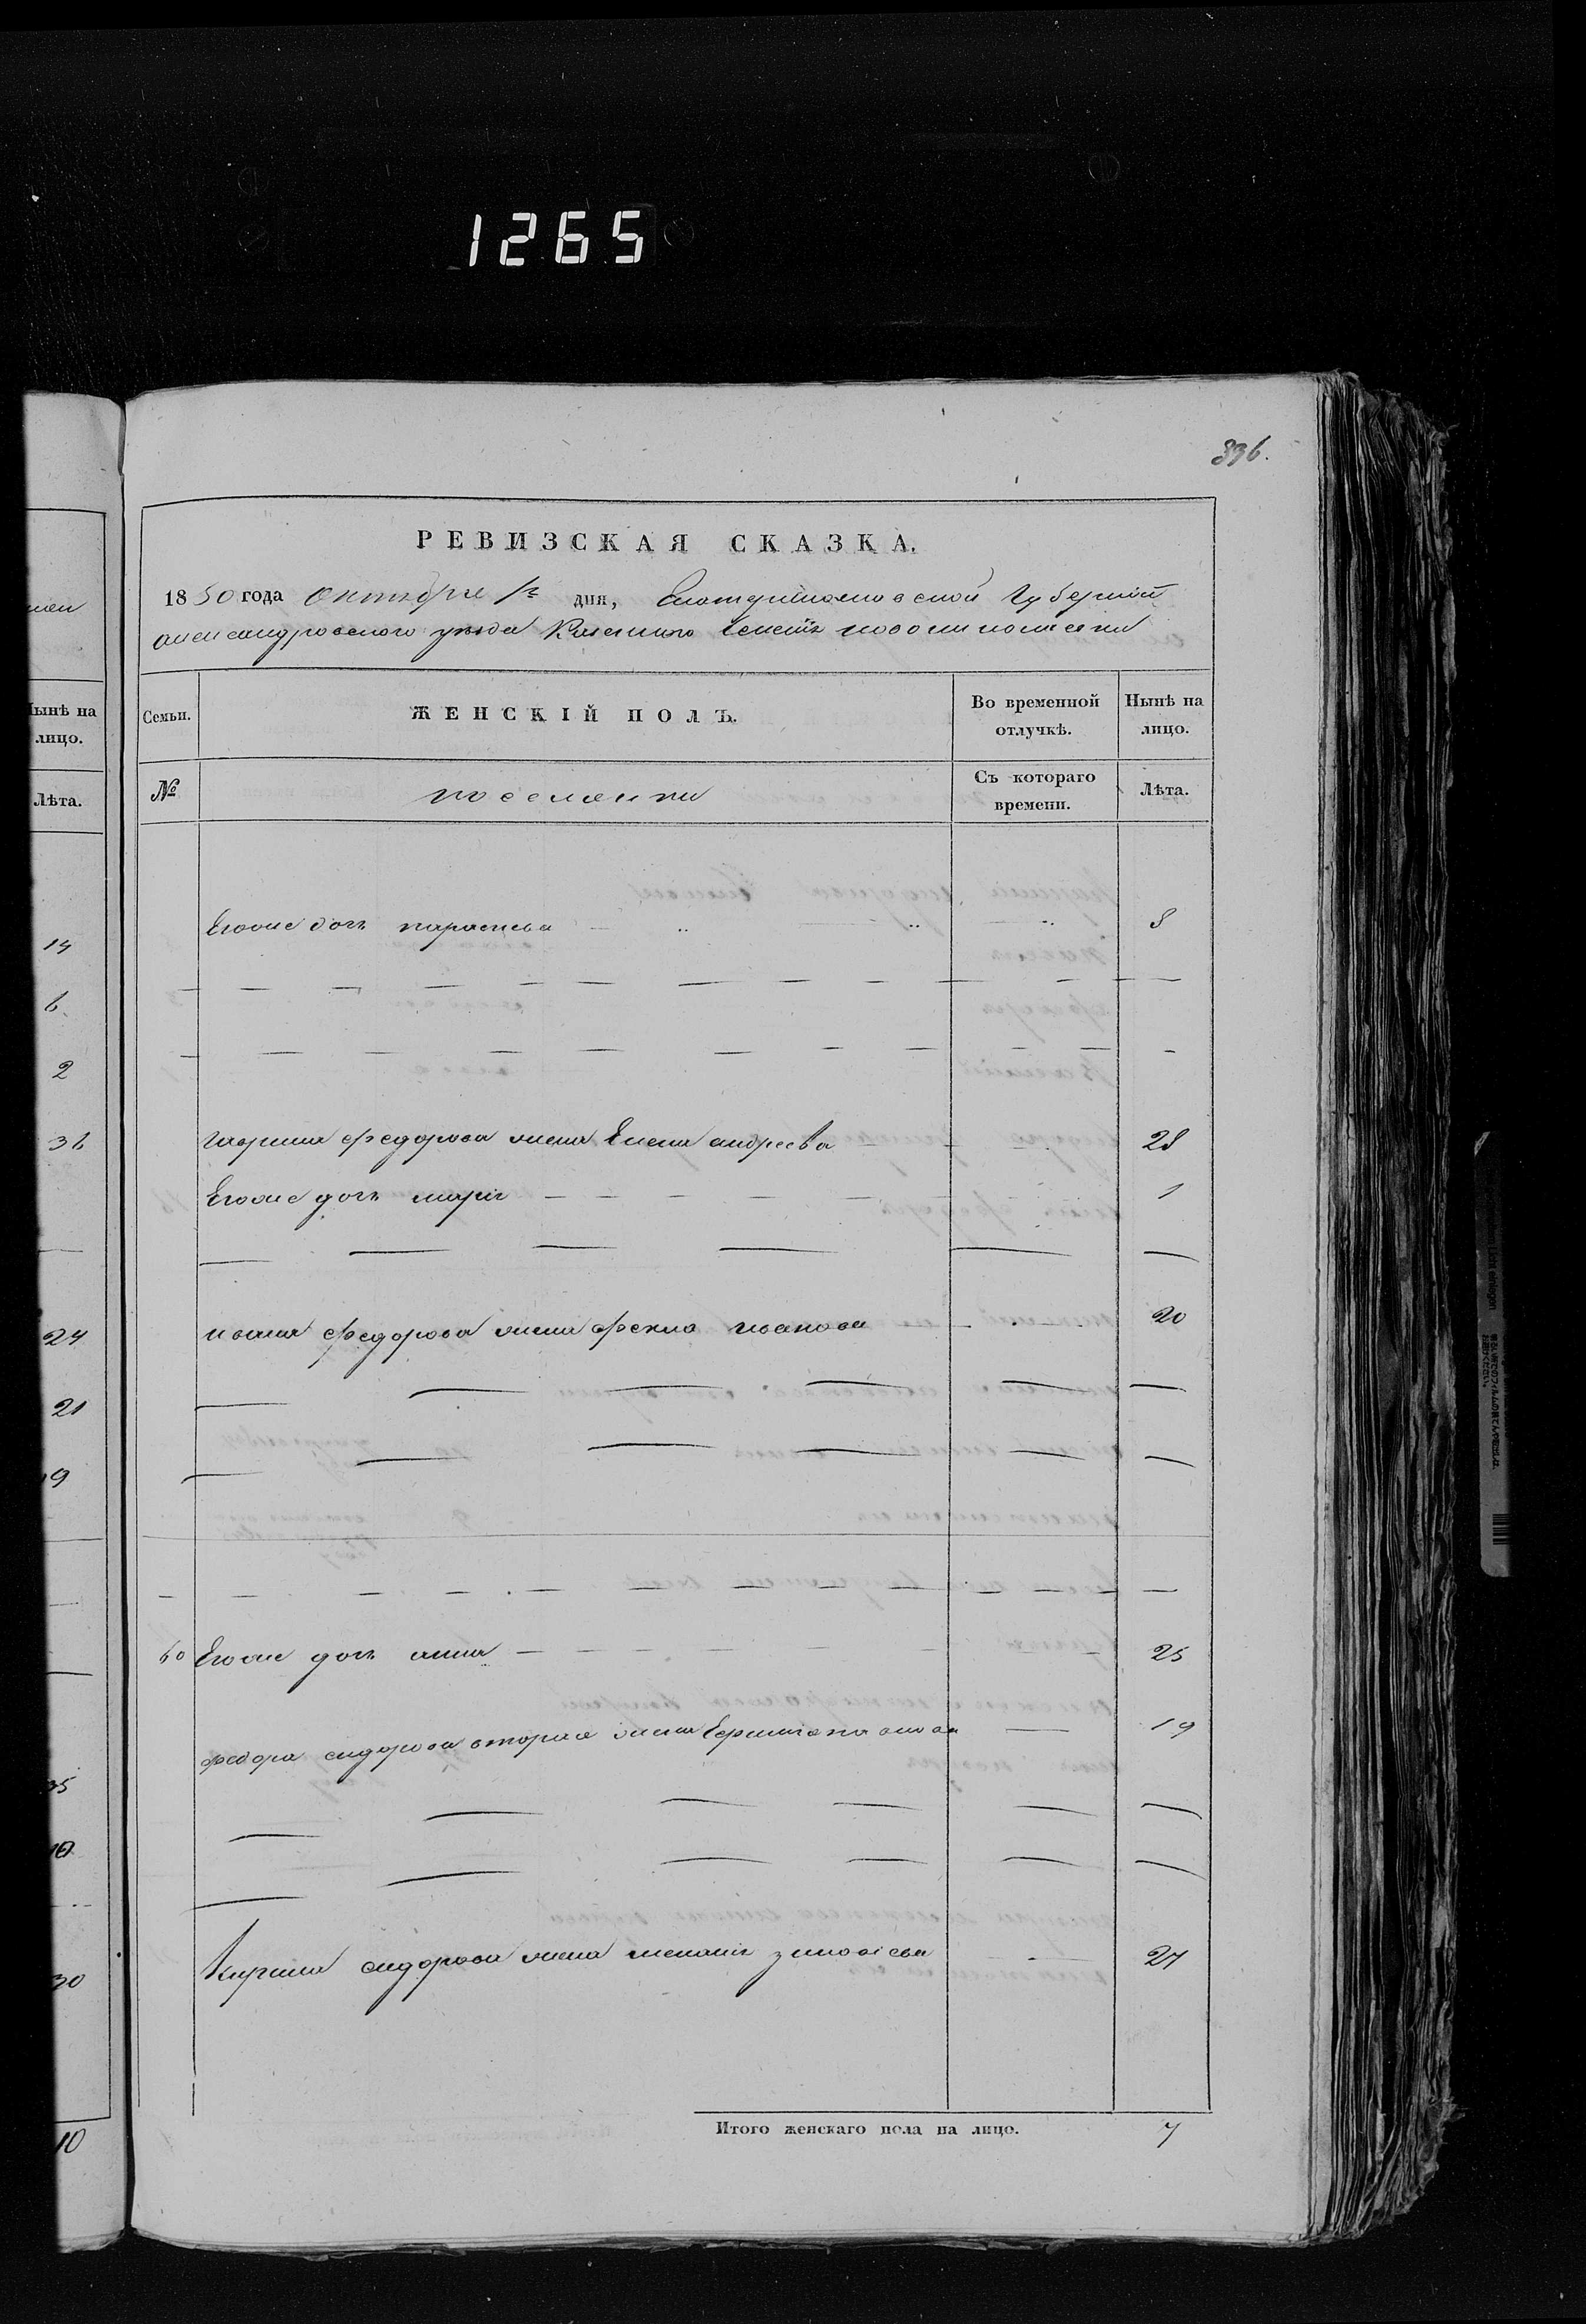 1265
396.
РЕВИЗСКАЯ СКАЗКА.
1850 года октября 1го дня, Екатеринославской Губернiи
александровского уезда Казенного селенiя новониколаевки
Семьи.
ЖЕНСКІЙ ПОЛЪ.
Во временной отлучкѣ.
Нынѣ на лицо.
№
поселянки
Съ котораго времени.
Лѣта.
Егоже дочь парасκева 8
гаврила федорова жена Елена андреева 28
Егоже дочь марiя 1
ивана федорова жена фекла иванова 20
60 Егоже дочь анна 25
федора сидорова вторая жена 19
Кирила сидорова жена меланiя зиновiева 27
Итого женскаго пола на лицо. 7
Нынѣ на
лицо.
Лѣта.
14
6
2
36
24
21
9
35
10
30
10